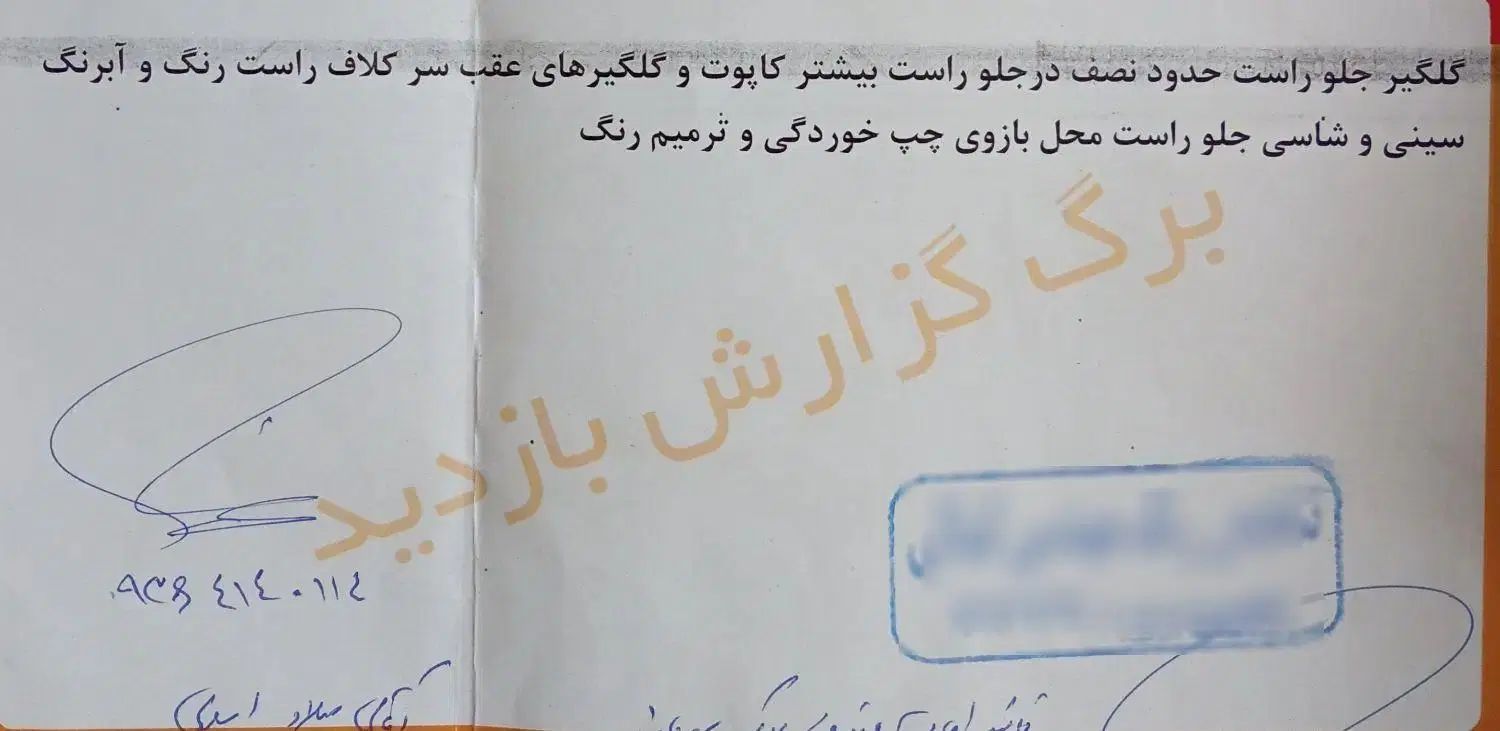 گلگیر جلو راست حدود نصف درجلو راست بیشتر کاپوت و گلگیرهای عقب سر کلاف راست رنگ و آبرنگ
سینی و شاسی جلو راست محل بازوی چپ خوردگی و ترمیم رنگ
برگ گزارش بازدید